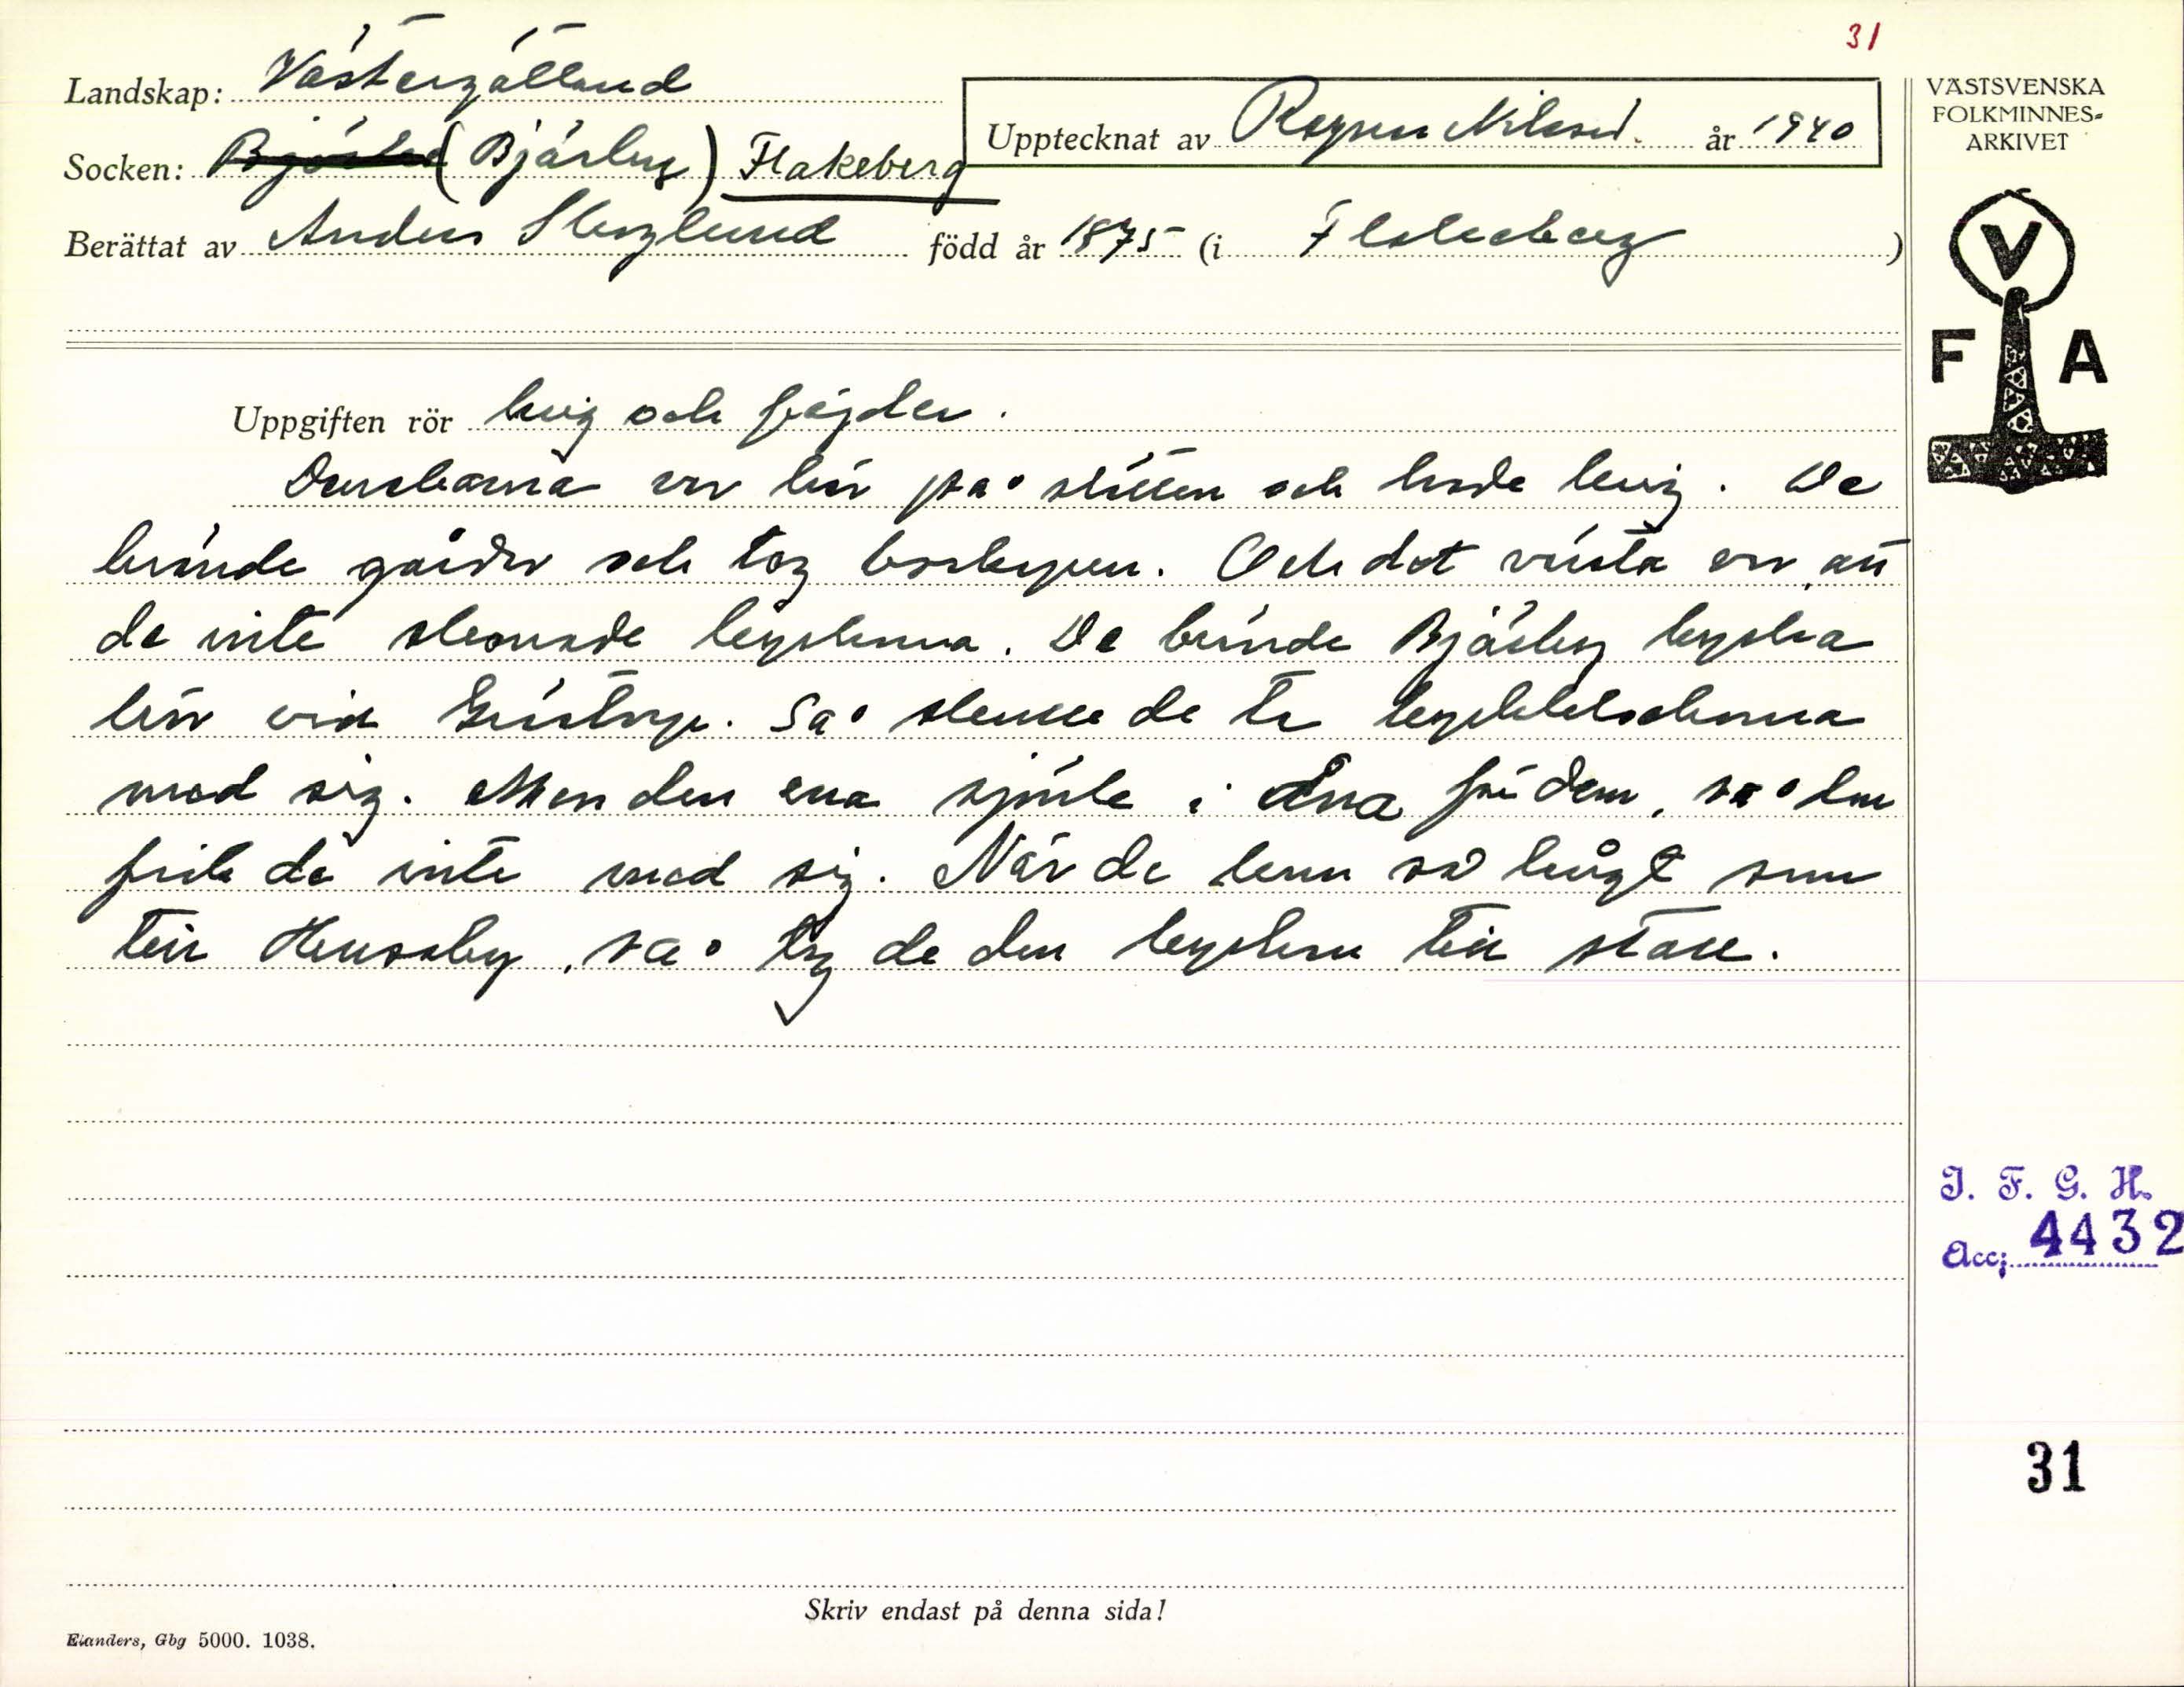 31
Landskap: Västergötland
VÄSTSVENSKA
FOLKMINNES-
ARKIVET
Upptecknat av Ragnar Nilsson. år 1940
Socken: (Bjärby) Flakeberg
Berättat av Anders Skoglund född år 1875 (i Flakeberg)
V
F A
Uppgiften rör krig och fejder.
Danskarna var här på slätten och hade krig. De
brände gårdar och tog boskapen. Och det värsta var, att
de inte skonade kyrkorna. De brände Bjärby kyrka
här vid Grästorp. Så skulle de ta kyrkklockorna
med sig. Men den ena sjönk i Åna för dem, så den
fick de inte med sig. När de kom så långt som
till Husaby, så tog de den kyrkan till stall.
I. F. G. H.
Acc; 4432
31
Skriv endast på denna sida!
Elanders, Gbg 5000. 1038.